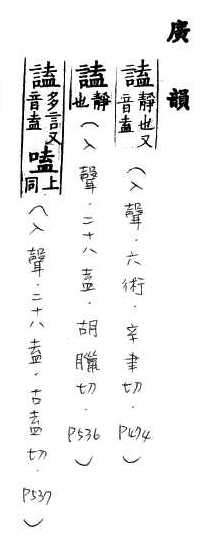 廣韻
謐靜也又音盍（入聲．六術．辛聿切．P474）
謐靜也（入聲．二十八盍．胡臘切．P536）
謐多言又音盍嗑上同（入聲．二十八盍．古盍切．P537）